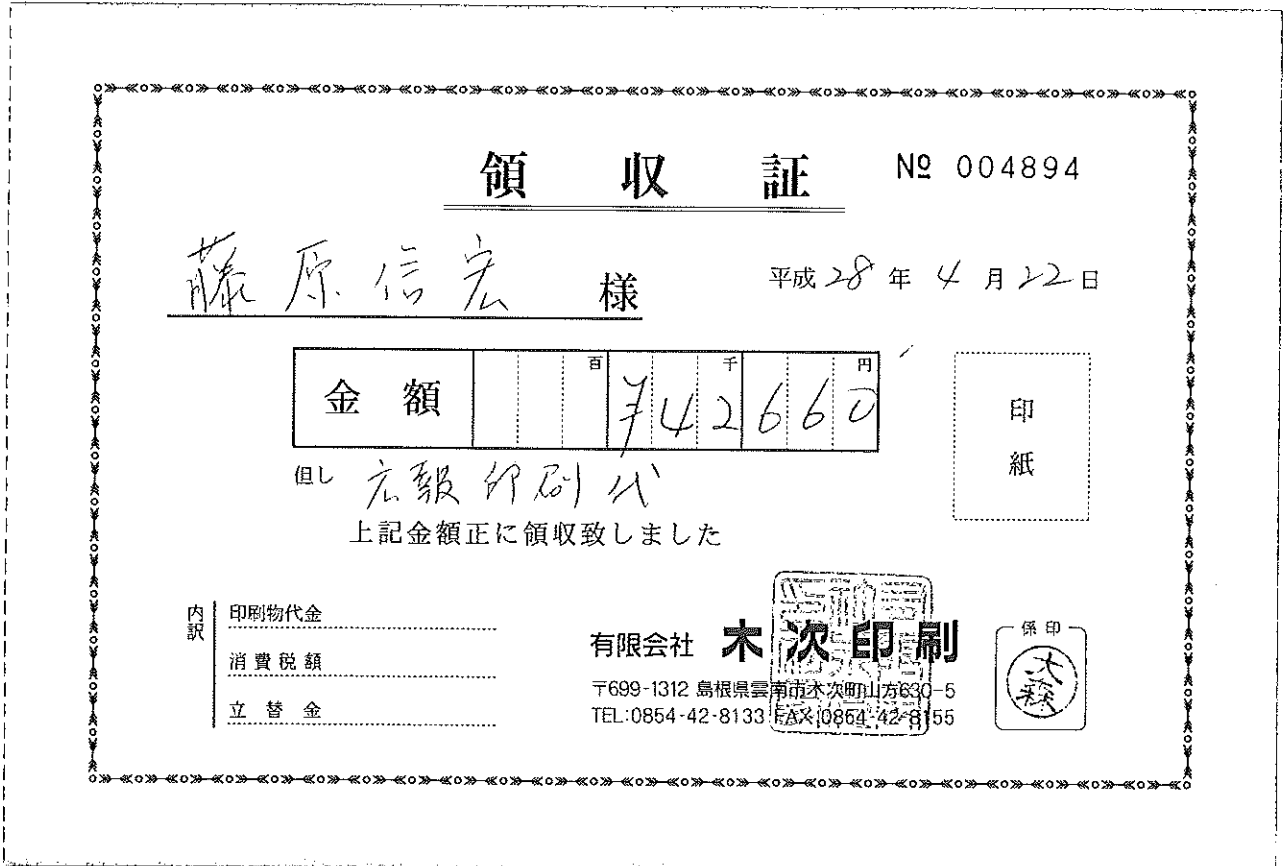 領収証 № 004894
藤原信宏 様
平成28年4月22日
金額 百 千 円
¥42660
但し 広報印刷代
上記金額正に領収致しました
印紙
内訳
印刷物代金
消費税額
立替金
有限会社 木次印刷
〒699-1312 島根県雲南市木次町山方630-5
TEL:0854-42-8133 FAX:0854-42-8155
係印
大森